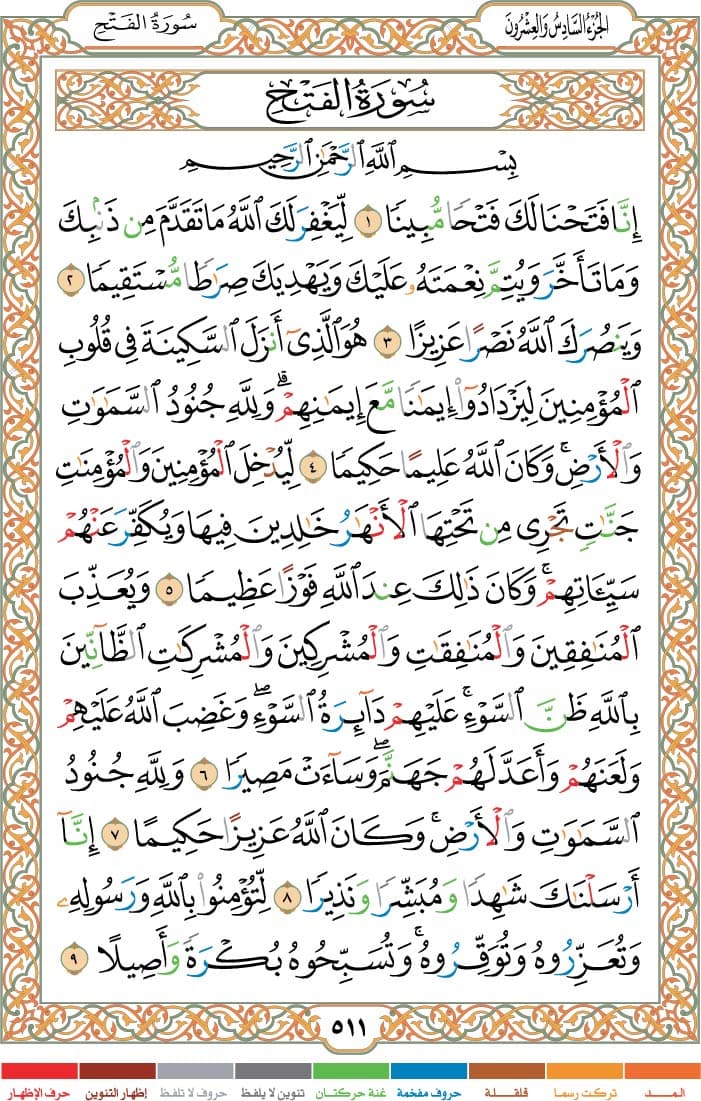 الجُزْءُ السَّادِسُ وَالعِشْرُونَ
سُورَةُ الفَتْحِ
سُورَةُ الفَتْحِ
بِسْمِ ٱللَّهِ ٱلرَّحْمَٰنِ ٱلرَّحِيمِ
إِنَّا فَتَحْنَا لَكَ فَتْحًا مُّبِينًا ١ لِّيَغْفِرَ لَكَ ٱللَّهُ مَا تَقَدَّمَ مِن ذَنۢبِكَ
وَمَا تَأَخَّرَ وَيُتِمَّ نِعْمَتَهُۥ عَلَيْكَ وَيَهْدِيَكَ صِرَٰطًا مُّسْتَقِيمًا ٢
وَيَنصُرَكَ ٱللَّهُ نَصْرًا عَزِيزًا ٣ هُوَ ٱلَّذِىٓ أَنزَلَ ٱلسَّكِينَةَ فِى قُلُوبِ
ٱلْمُؤْمِنِينَ لِيَزْدَادُوٓا۟ إِيمَٰنًا مَّعَ إِيمَٰنِهِمْ ۗ وَلِلَّهِ جُنُودُ ٱلسَّمَٰوَٰتِ
وَٱلْأَرْضِ ۚ وَكَانَ ٱللَّهُ عَلِيمًا حَكِيمًا ٤ لِّيُدْخِلَ ٱلْمُؤْمِنِينَ وَٱلْمُؤْمِنَٰتِ
جَنَّٰتٍ تَجْرِى مِن تَحْتِهَا ٱلْأَنْهَٰرُ خَٰلِدِينَ فِيهَا وَيُكَفِّرَ عَنْهُمْ
سَيِّـَٔاتِهِمْ ۚ وَكَانَ ذَٰلِكَ عِندَ ٱللَّهِ فَوْزًا عَظِيمًا ٥ وَيُعَذِّبَ
ٱلْمُنَٰفِقِينَ وَٱلْمُنَٰفِقَٰتِ وَٱلْمُشْرِكِينَ وَٱلْمُشْرِكَٰتِ ٱلظَّآنِّينَ
بِٱللَّهِ ظَنَّ ٱلسَّوْءِ ۚ عَلَيْهِمْ دَآئِرَةُ ٱلسَّوْءِ ۖ وَغَضِبَ ٱللَّهُ عَلَيْهِمْ
وَلَعَنَهُمْ وَأَعَدَّ لَهُمْ جَهَنَّمَ ۖ وَسَآءَتْ مَصِيرًا ٦ وَلِلَّهِ جُنُودُ
ٱلسَّمَٰوَٰتِ وَٱلْأَرْضِ ۚ وَكَانَ ٱللَّهُ عَزِيزًا حَكِيمًا ٧ إِنَّآ
أَرْسَلْنَٰكَ شَٰهِدًا وَمُبَشِّرًا وَنَذِيرًا ٨ لِّتُؤْمِنُوا۟ بِٱللَّهِ وَرَسُولِهِۦ
وَتُعَزِّرُوهُ وَتُوَقِّرُوهُ ۚ وَتُسَبِّحُوهُ بُكْرَةً وَأَصِيلًا ٩
٥١١
المـــد تركت رسما قلقلة حروف مفخمة غنة حركتان تنوين لا يلفظ حروف لا تلفظ إظهار التنوين حرف الإظهار